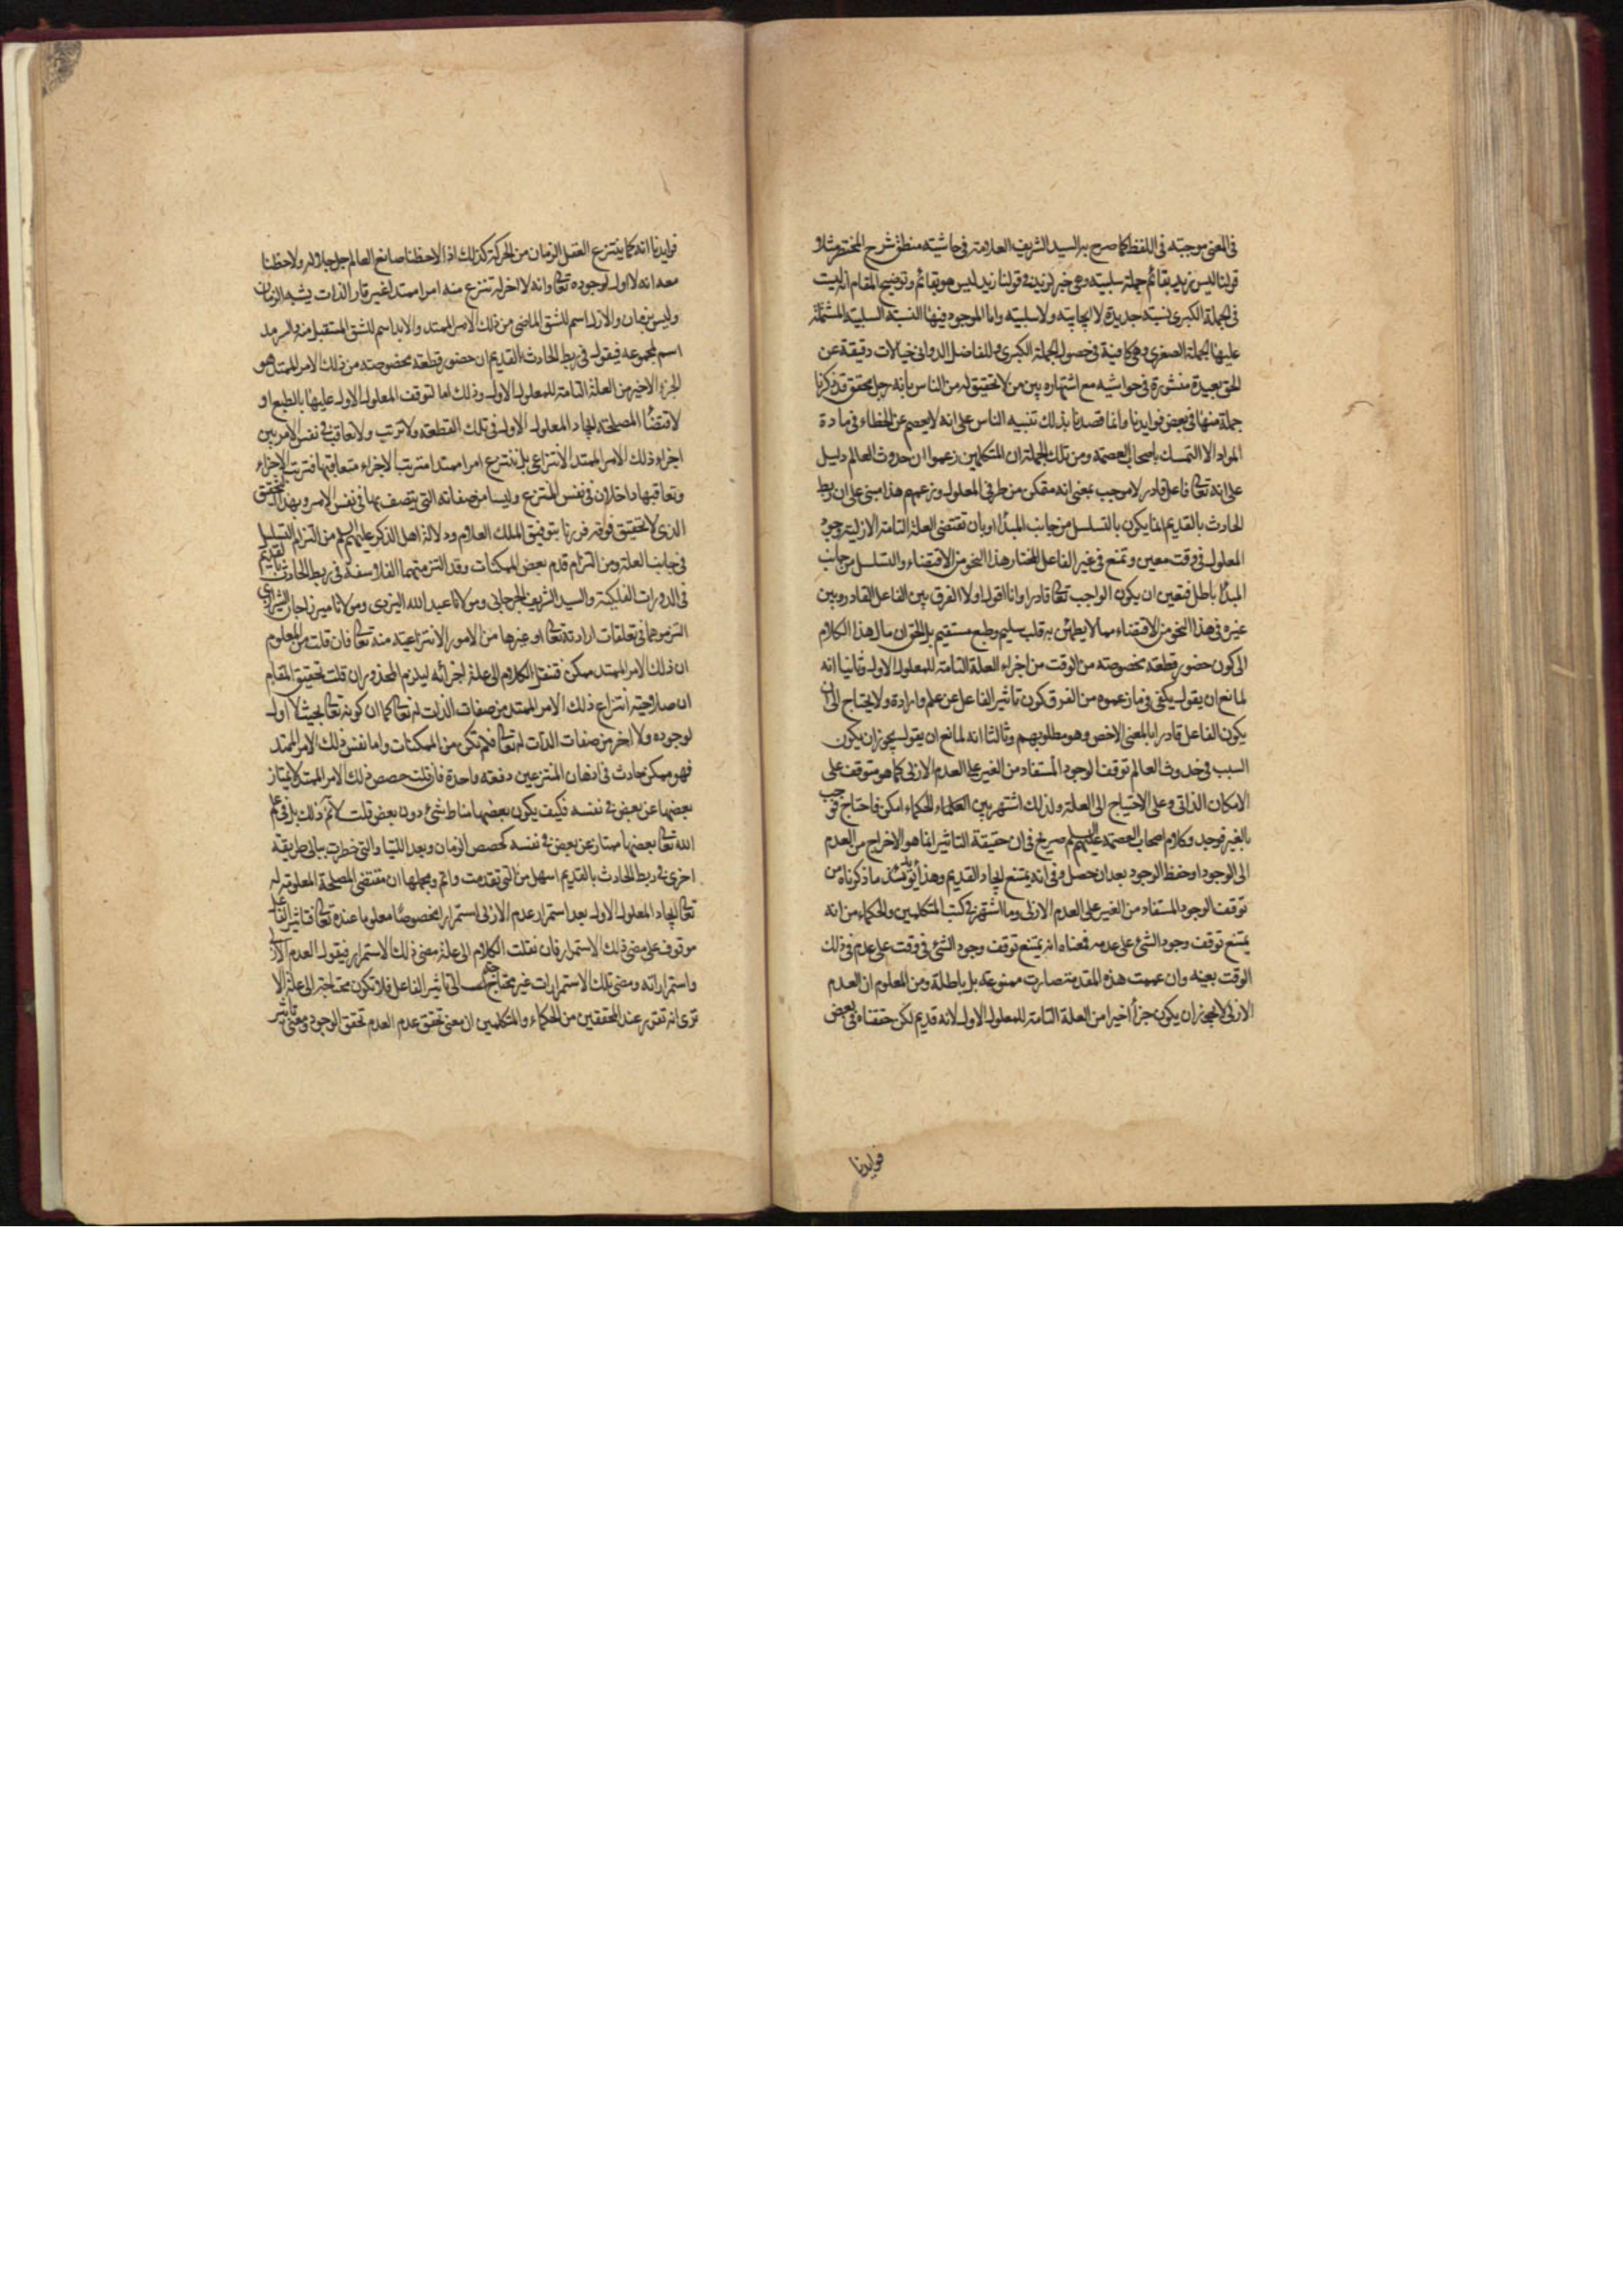 فى المعنى موجبته فى اللفظ كما صرح به السيد الشريف العلامة فى حاشيته منطق شرح المختصر مثلا و
قولنا ليس زيد بقائم جملة سلبية وهى خبر لزيد فى قولنا زيد ليس هو بقائم وتوضيح المقام انه ليست
فى الجملة الكبرى نسبة جديدة لا ايجابية ولا سلبية واما الموجود فيها النسبة السلبية المشتملة
عليها الجملة الصغرى وهى كافية فى حصول الجملة الكبرى وللفاضل الدوانى خيالات دقيقة عن
الحق بعيدة منشورة فى حواشيه مع اشتهاره بين من لا تحقيق له من الناس بانه رجل محقق قد ذكرنا
جملة منها فى بعض فوايدنا وانما قصدنا بذلك تنبيه الناس على انه لا يعصم عن الخطاء فى مادة
المواد الا التمسك باصحاب العصمة ومن تلك الجملة ان المتكلمين زعموا ان حدوث العالم دليل
على انه تعالى فاعل قادر لا موجب بمعنى انه متمكن من طرفى المعلول وزعمهم هذا مبنى على ان ربط
الحادث بالقديم انما يكون بالتسلسل من جانب المبدأ او بان تقتضى العلة التامة الازلية وجود
المعلول فى وقت معين ويمتنع فى غير الفاعل المختار هذا النحو من الاقتضاء والتسلسل من جانب
المبدأ باطل فتعين ان يكون الواجب تعالى قادرا وانا اقول اولا الفرق بين الفاعل القادر وبين
غيره فى هذا النحو من الاقتضاء مما لا يطمئن به قلب سليم وطبع مستقيم بل الحق ان مال هذا الكلام
الى كون حضور قطعة مخصوصة من الوقت من اجزاء العلة التامة للمعلول الاول وثانيا انه
لمانع ان يقول يكفى فيما زعموه من الفرق كون تاثير الفاعل عن علم وارادة ولا يحتاج الى ان
يكون الفاعل قادرا بالمعنى الاخص وهو مطلوبهم وثالثا انه لمانع ان يقول يجوز ان يكون
السبب فى حدوث العالم توقف الوجود المستفاد من الغير على العدم الازلى كما هو متوقف على
الامكان الذاتى وعلى الاحتياج الى العلة ولذلك اشتهر بين العلماء الحكماء امكن فاحتاج فوجب
بالغير فوجد وكلام اصحاب العصمة عليهم السلم صريح فى ان حقيقة التاثير انما هو الاخراج من العدم
الى الوجود او حفظ الوجود بعد ان حصل وفى انه يمتنع ايجاد القديم وهذا يؤيد ما ذكرناه من
توقف الوجود المستفاد من الغير على العدم الازلى وما اشتهر فى كتب المتكلمين والحكماء من انه
يمتنع توقف وجود الشئ على عدمه فمعناه انه يمتنع توقف وجود الشئ فى وقت على عدمه فى ذلك
الوقت بعينه وان عممت هذه المقدمة صارت ممنوعة بل باطلة ومن المعلوم ان العدم
الازلى لا يجوز ان يكون جزأ اخيرا من العلة التامة للمعلول الاول لانه قديم لكن حققناه فى بعض
فوايدنا
فوايدنا انه كما ينتزع العقل الزمان من الحركة كذلك اذا لاحظنا صانع العالم جل جلاله ولاحظنا
معه انه لا اول لوجوده تعالى وانه لا اخر له تنتزع منه امرا ممتدا غير قار الذات يشبه الزمان
وليس بزمان والازل اسم للشق الماضى من ذلك الامر الممتد والابد اسم للشق المستقبل منه والسرمد
اسم لمجموعه فيقول فى ربط الحادث القديم ان حضور قطعة مخصوصة من ذلك الامر الممتد هو
الجزء الاخير من العلة التامة للمعلول الاول وذلك اما لتوقف المعلول الاول عليها بالطبع او
لاقتضاء المصلحة ايجاد المعلول الاول فى تلك القطعة ولا ترتب ولا تعاقب فى نفس الامر بين
اجزاء ذلك الامر الممتد الانتزاعى بل ننتزع امرا ممتدا مترتب الاجزاء متعاقبها فترتب الاجزاء
وتعاقبها داخلان فى نفس المنتزع وليسا من صفاته التى يتصف بها فى نفس الامر وبهذا التحقيق
الذى لا تحقيق فوقه فررنا بتوفيق الملك العلام ودلالة اهل الذكر عليهم السلم من التزام التسلسل
فى جانب العلة ومن التزام قدم بعض الممكنات وقد التزمتهما الفلاسفة فى ربط الحادث بالقديم
فى الدورات الفلكية والسيد الشريف الجرجانى ومولانا عبد الله اليزدى ومولانا ميرزاجان الشيرازى
التزموهما فى تعلقات ارادته تعالى او غيرها من الامور الانتزاعية منه تعالى فان قلت من المعلوم
ان ذلك الامر الممتد ممكن فننقل الكلام الى علة اجزائه ليلزم المحذوران قلت تحقيق المقام
ان صلاحية انتزاع ذلك الامر الممتد من صفات الذات له تعالى كما ان كونه تعالى بحيث لا اول
لوجوده ولا اخر من صفات الذات له تعالى فلم تكن من الممكنات واما نفس ذلك الامر الممتد
فهو ممكن حادث فى اذهان المنتزعين دفعة واحدة فان قلت حصص ذلك الامر الممتد لا يمتاز
بعضها عن بعض فى نفسه فكيف يكون بعضها مناط شئ دون بعض قلت لا نم ذلك بل فى علم
الله تعالى بعضها ممتاز عن بعض فى نفسه كحصص الزمان وبعد اللتيا والتى خطرت ببالى طريقة
اخرى فى ربط الحادث بالقديم اسهل من التى تقدمت واتم ومجملها ان مقتضى المصلحة المعلومة له
تعالى ايجاد المعلول الاول بعد استمرار عدم الازلى استمرارا مخصوصا معلوما عنده تعالى فتاثير الفاعل
موقوف على مضى ذلك الاستمرار فان نقلت الكلام الى علة مضى ذلك الاستمرار فيقول العدم الازلى
واستمراراته ومضى تلك الاستمرارات غير محتاج الى تاثير الفاعل فلا تكون محتاجة الى علة الا
ترى انه تقرر عند المحققين من الحكماء والمتكلمين ان معنى تحقق عدم العدم تحقق الوجود ومعنى تاثير